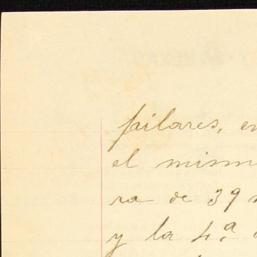 pilares, en
el mism
ra de 39
y la 4.ª